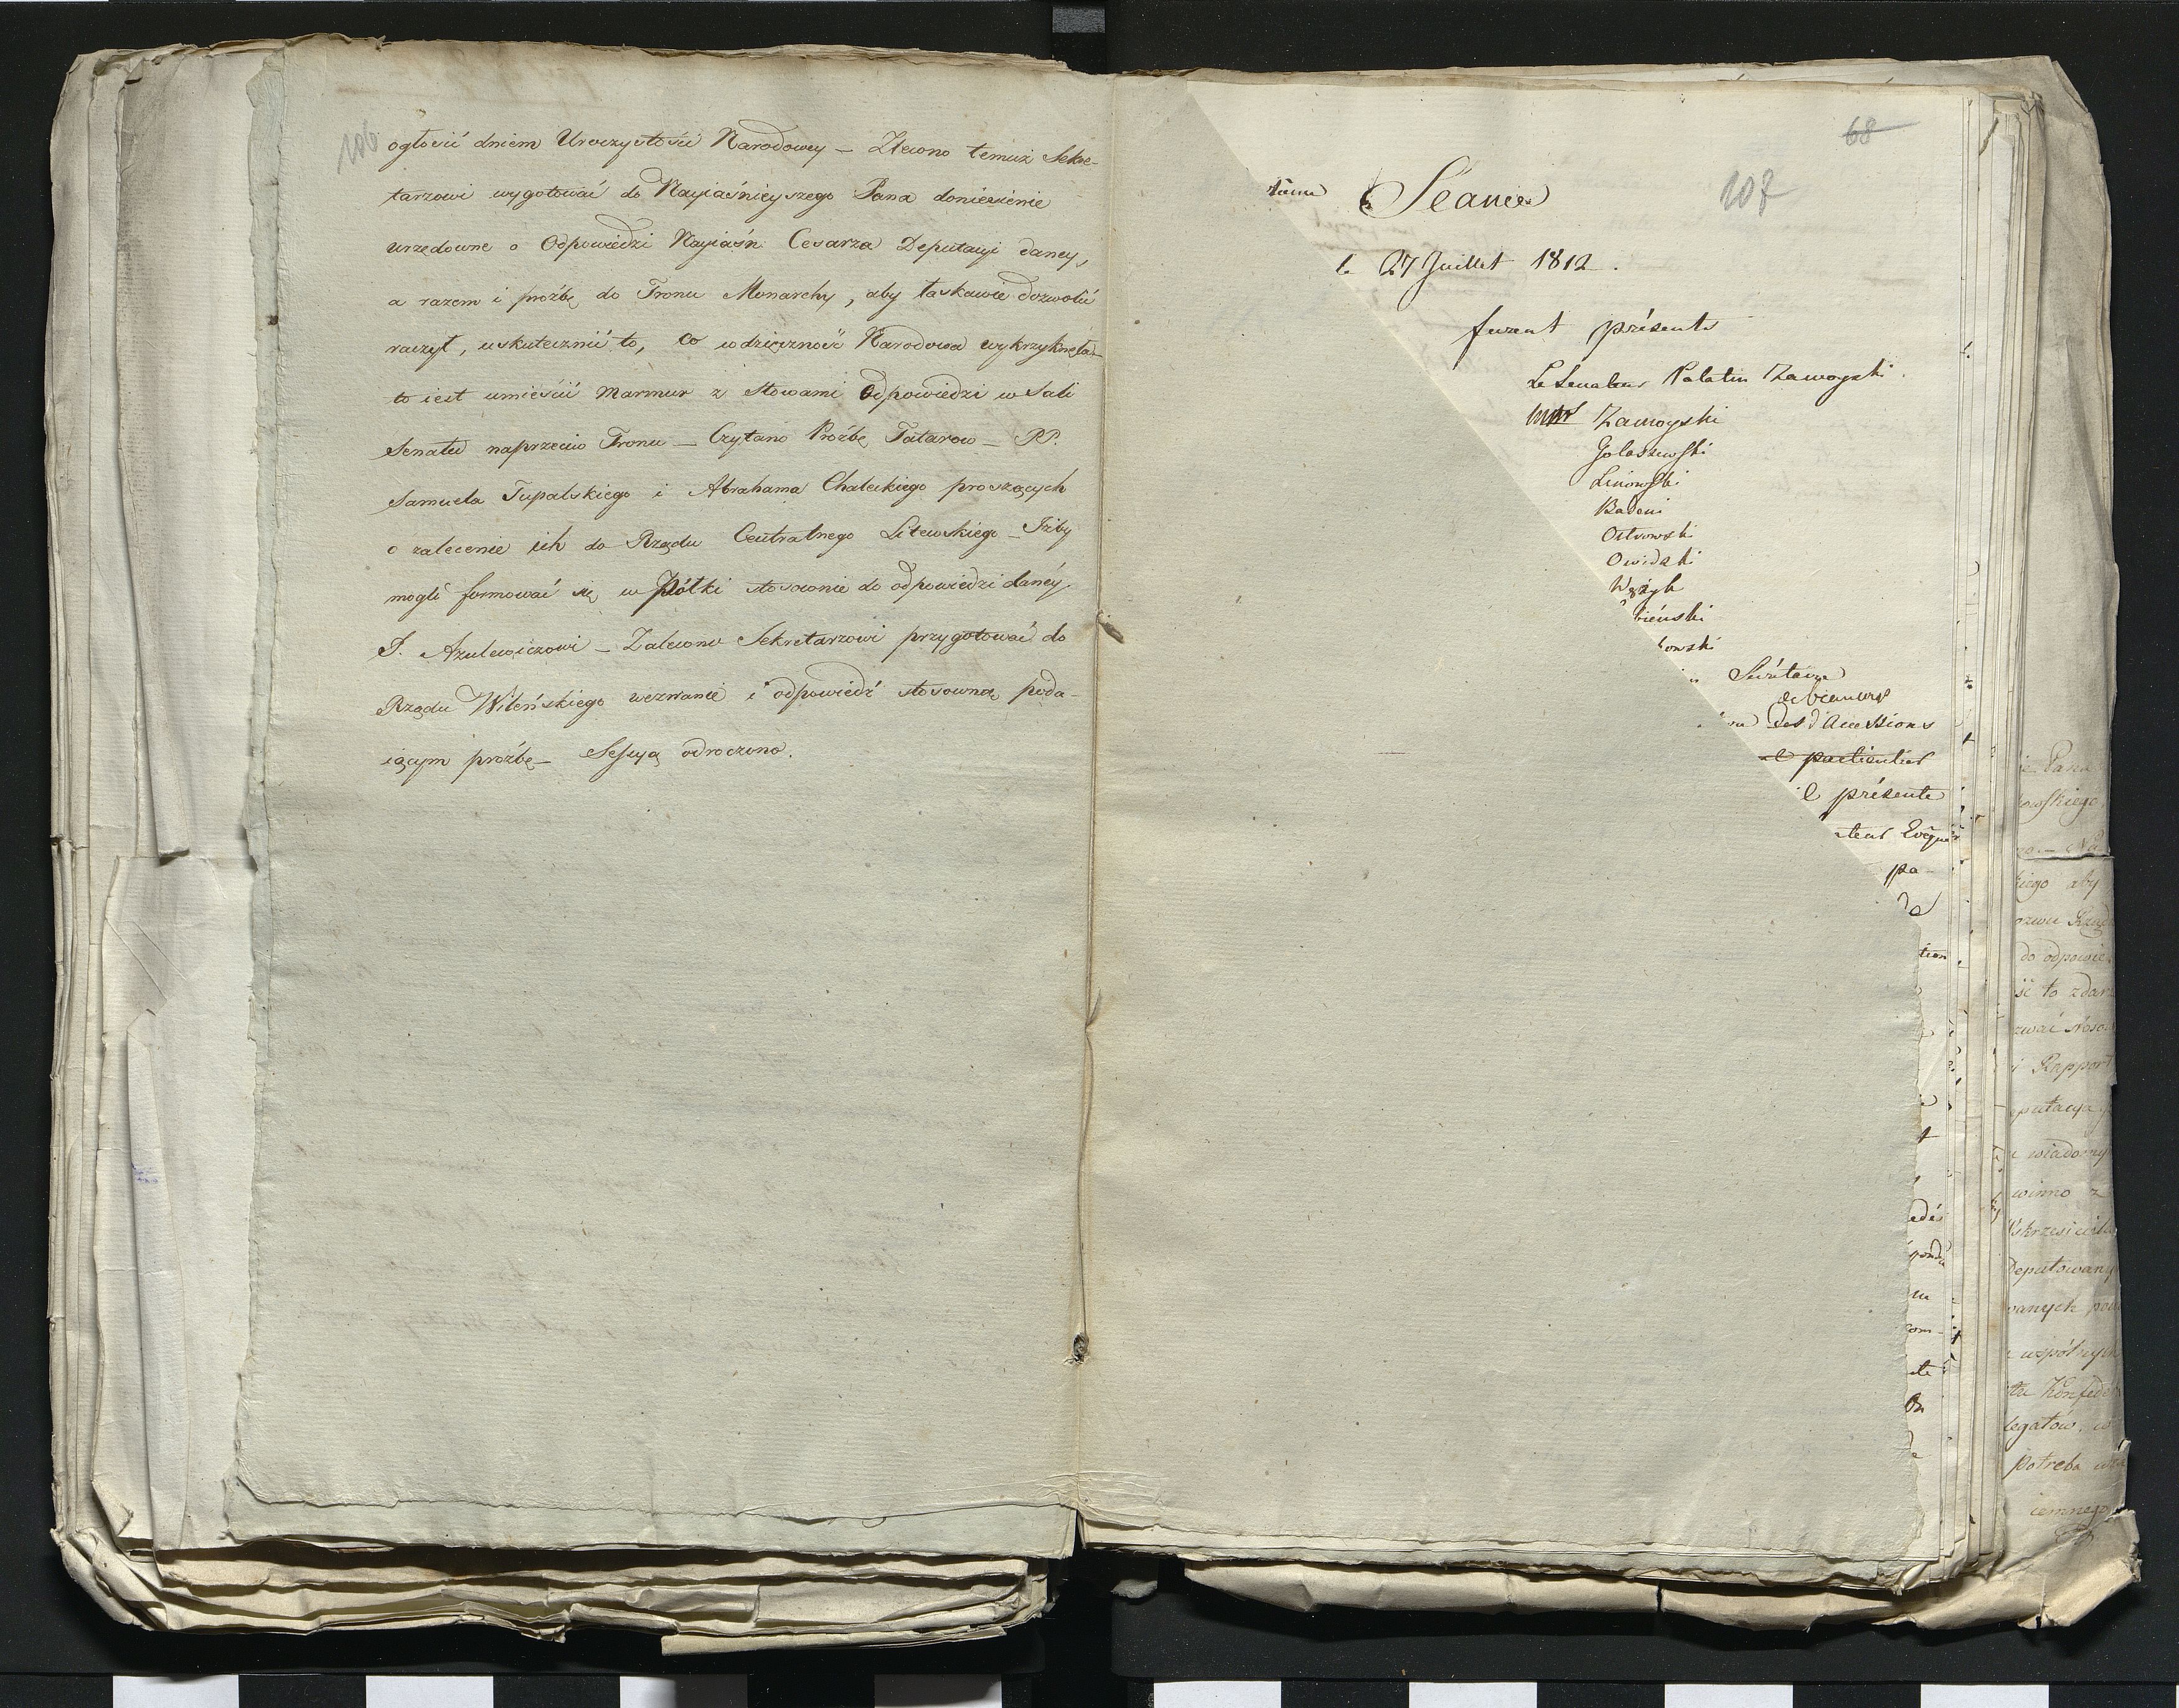 106
ogłosić dniem Uroczystości Narodowey – Zlecono temuż Sekre-
tarzowi wygotować do Nayiaśnieyszego Pana doniesienie
urzędowne o Odpowiedzi Nayiaśn: Cesarza Deputacyi daney,
a razem i proźbę do Tronu Monarchy, aby łaskawie dozwolić
raczył, uskutecznić to, co wdzięczność Narodowa wykrzyknęła
to iest umieścić Marmur z Słowami Odpowiedzi w Sali
Senatu naprzeciw Tronu – Czytano Proźbę Tatarow – PP.
Samuela Tupalskiego i Abrahama Chaleckiego proszących
o zalecenie ich do Rządu Centralnego Litewskiego – Iżby
mogli formować się w Półki stosownie do odpowiedzi danéy
P. Azulewiczowi – Zalecono Sekretarzowi przygotować do
Rządu Wileńskiego wezwanie i odpowiedź stosowną poda-
iącym proźbę – Sessyą odroczono.
68
107
Séance
le 27 Juillet 1812.
furent présents
Le Senateur Palatin Zamoyski
Zamoyski
Golaszewski
Linowski
Badeni
Ostrowski
Owidzki
Wężyk
bieński
owski
Sécrétaire
des d'Accessions
particulier
présente
pa-
de
tion
ie Pana
kowskiego
kiego aby
ozwu Rząd
do odpowie
ść to zdar
zwać
i Rapport
eputacya
wiadomy
winno z
Wskrzesiciela
Deputowany
wanych
współ
tu Konfede
legatów, w
potrzeba
iemnego